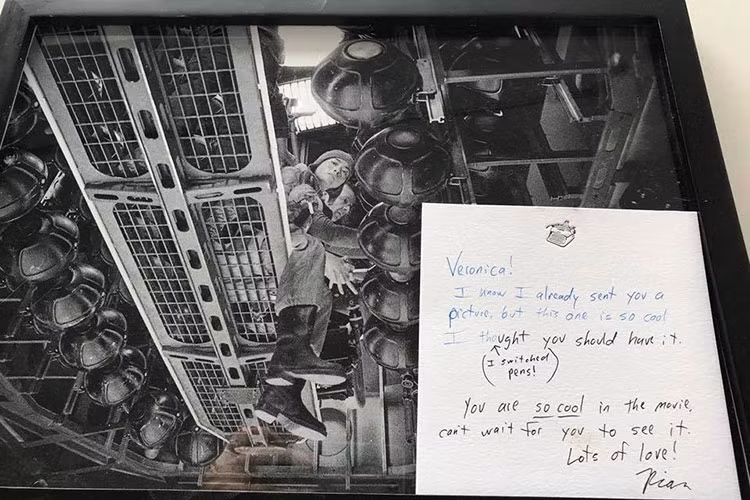 Veronica!
I know I already sent you a
picture, but this one is so cool
I thought you should have it.
(I switched
pens!)
You are so cool in the movie,
can't wait for you to see it.
Lots of love!
Rian